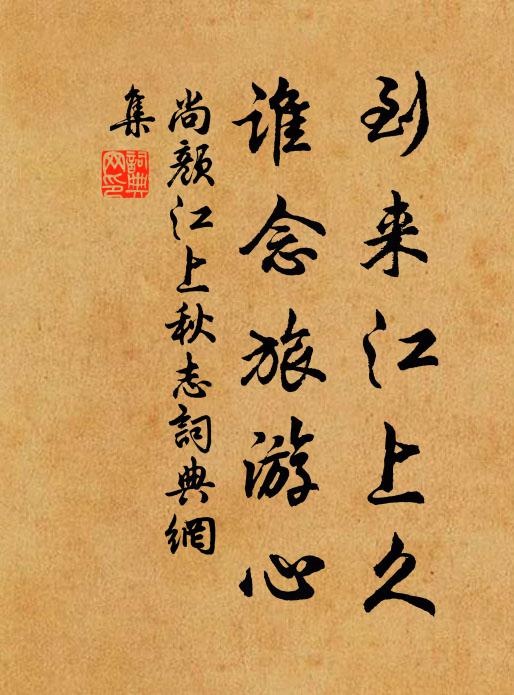 到来江上久
谁念旅游心
尚顏江上秋志詞典網
集
詞典
网印